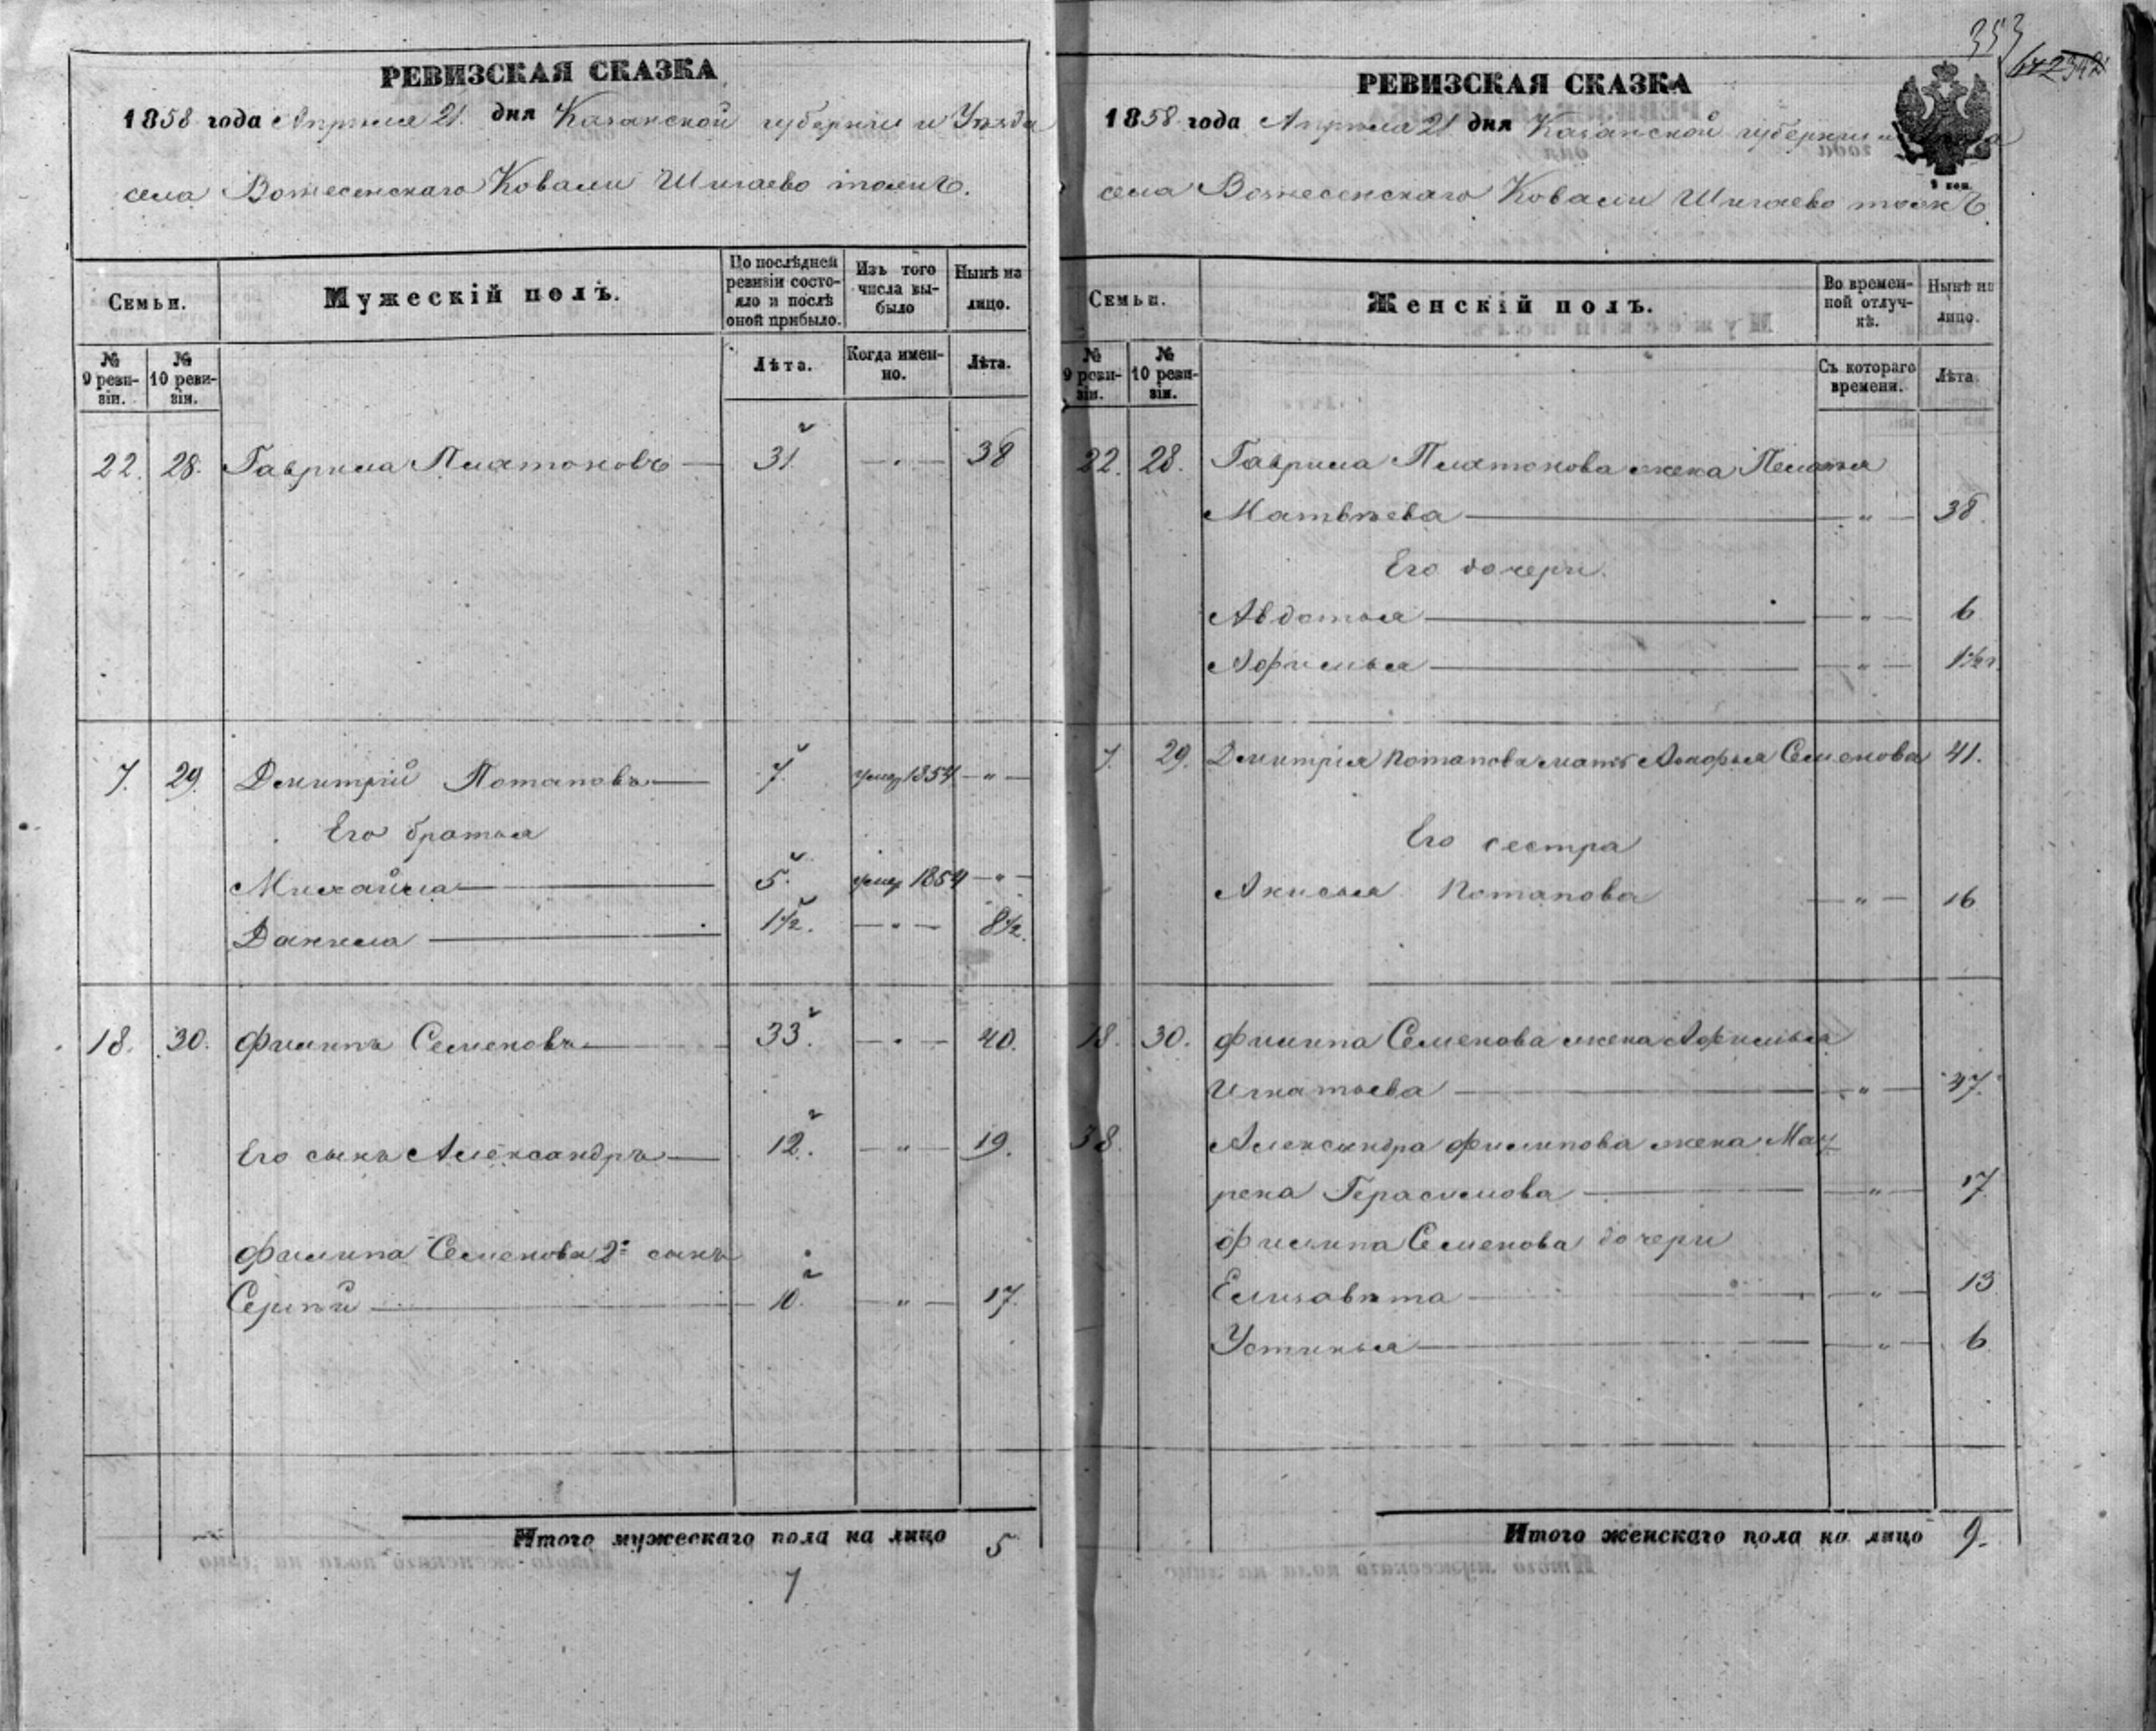 РЕВИЗСКАЯ СКАЗКА
1858 года Апреля 21 дня Казанской губернии и Уезда
села Вознесенскаго Ковали Шигаево тожъ.
Семьи.
Мужескій полъ.
По послѣдней ревизіи состояло и послѣ оной прибыло.
Изъ того числа выбыло
Нынѣ на лицо.
№ 9 ревизіи.
№ 10 ревизіи.
Лѣта.
Когда именно.
Лѣта.
22. 28. Гаврила Платоновъ — 31 — „ — 38
7. 29. Дмитрій Потаповъ — 7. умер 1854 — „ —
Его братья
Михайла — 5. умер 1854 — „ —
Данила — 1½. — „ — 8½.
18. 30. Филипъ Семеновъ — 33. — „ — 40.
Его сынъ Александръ — 12. — „ — 19.
Филипа Семенова 2й сынъ
Сергѣй — 10. — „ — 17.
Итого мужескаго пола на лицо 5
7
353
РЕВИЗСКАЯ СКАЗКА
1858 года Апреля 21 дня Казанской губернии и
села Вознесенскаго Ковали Шигаево тожъ
Семьи.
Женскій полъ.
Во временной отлучкѣ.
Нынѣ на лицо.
№ 9 ревизіи.
№ 10 ревизіи.
Съ котораго времени.
Лѣта.
22. 28. Гаврила Платонова жена Пелагья
Матвѣева — „ — 38.
Его дочери.
Авдотья — „ — 6
Афимья — „ — 1½
7. 29. Дмитрія Потапова мать Семенова 41.
Его сестра
Акисья Потапова — „ — 16
18. 30. Филипа Семенова жена Афимья
Игнатьева — „ — 47.
38. Александра Филипова жена Мав
рена Герасимова — „ — 17
Филипа Семенова дочери
Елизавѣта — „ — 13
Устинья — „ — 6.
Итого женскаго пола на лицо 9.